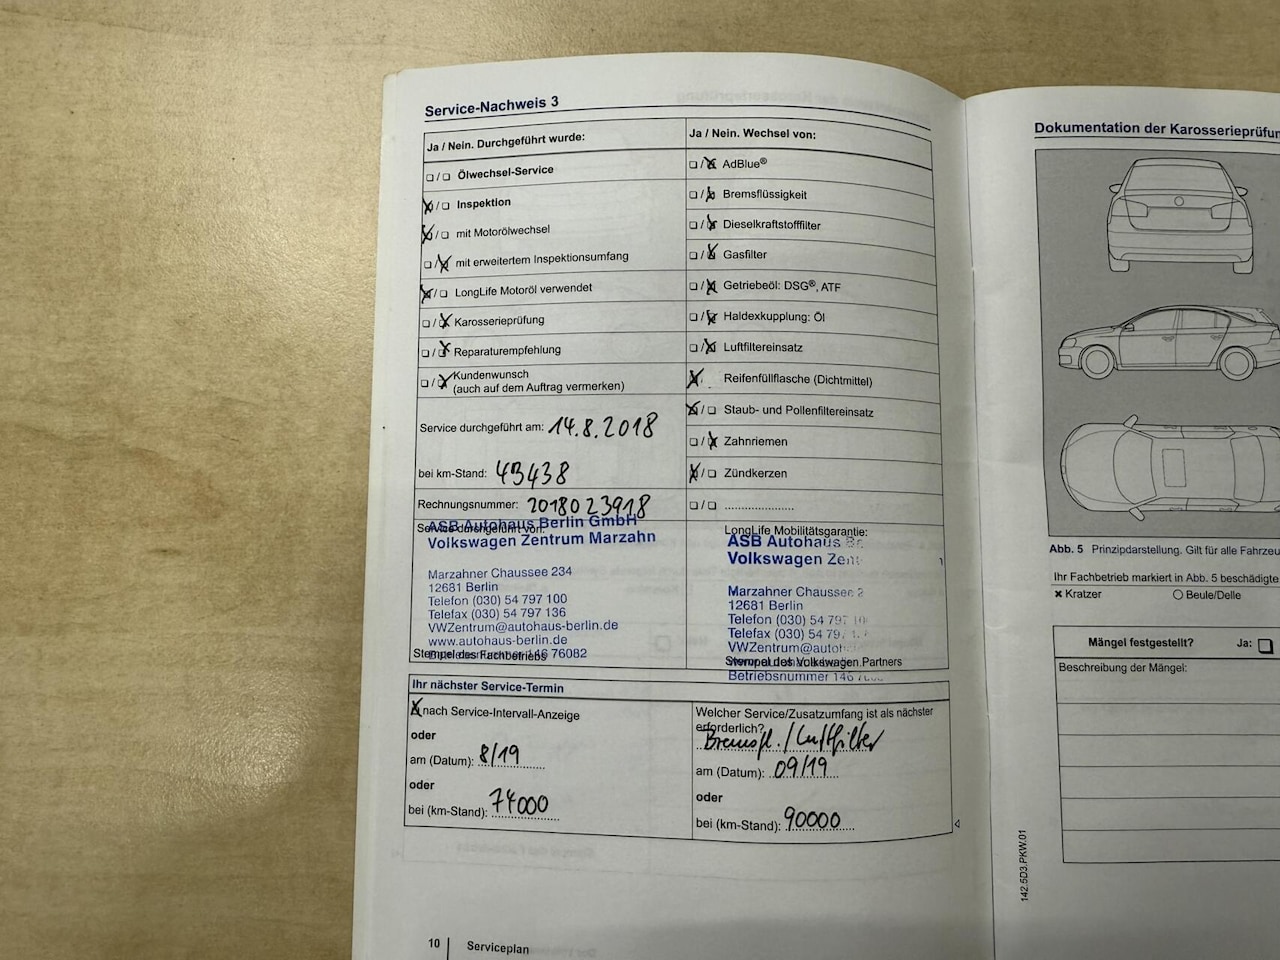 Service-Nachweis 3
Ja / Nein. Durchgeführt wurde:
Ölwechsel-Service
Inspektion
mit Motorölwechsel
mit erweitertem Inspektionsumfang
LongLife Motoröl verwendet
Karosserieprüfung
Reparaturempfehlung
Kundenwunsch
(auch auf dem Auftrag vermerken)
Service durchgeführt am: 14.8.2018
bei km-Stand: 43438
Rechnungsnummer: 2018023918
Service durchgeführt von:
ASB Autohaus Berlin GmbH
Volkswagen Zentrum Marzahn
Marzahner Chaussee 234
12681 Berlin
Telefon (030) 54 797 100
Telefax (030) 54 797 136
VWZentrum@autohaus-berlin.de
www.autohaus-berlin.de
Betriebsnummer 146 76082
Stempel des Fachbetriebs
Ja / Nein. Wechsel von:
AdBlue®
Bremsflüssigkeit
Dieselkraftstofffilter
Gasfilter
Getriebeöl: DSG®, ATF
Haldexkupplung: Öl
Luftfiltereinsatz
Reifenfüllflasche (Dichtmittel)
Staub- und Pollenfiltereinsatz
Zahnriemen
Zündkerzen
LongLife Mobilitätsgarantie:
ASB Autohaus Be
Volkswagen Zen
Marzahner Chaussee 2
12681 Berlin
Telefon (030) 54 797 10
Telefax (030) 54 79
VWZentrum@autoh
Stempel des Volkswagen Partners
Betriebsnummer 146
Ihr nächster Service-Termin
nach Service-Intervall-Anzeige
oder
am (Datum): 8/19
oder
bei (km-Stand): 74000
Welcher Service/Zusatzumfang ist als nächster
erforderlich?
Bremsfl./Luftfilter
am (Datum): 09/19
oder
bei (km-Stand): 90000
10
Serviceplan
Dokumentation der Karosserieprüfun
Abb. 5 Prinzipdarstellung. Gilt für alle Fahrzeu
Ihr Fachbetrieb markiert in Abb. 5 beschädigte
Kratzer
Beule/Delle
Mängel festgestellt? Ja:
Beschreibung der Mängel:
142.5D3.PKW.01